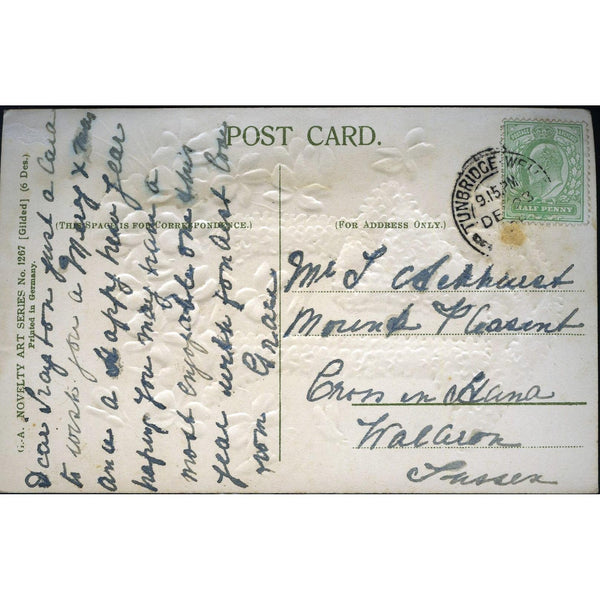 POST CARD.
(THIS SPACE IS FOR CORRESPONDENCE.)
(FOR ADDRESS ONLY.)
G.-A. NOVELTY ART SERIES No. 1267 [Gilded] (6 Des.)
Printed in Germany.
Dear just a Card
to wish you a Mery Xmas
and a happy new year
hoping you may have a
most enjoyable one this
year with fondest love
from Grace
TUNBRIDGE WELLS
9.15 PM
DE
HALF PENNY
Mr T Ockhurst
Mound Pleasint
Cross in Hand
Waldron
Sussex